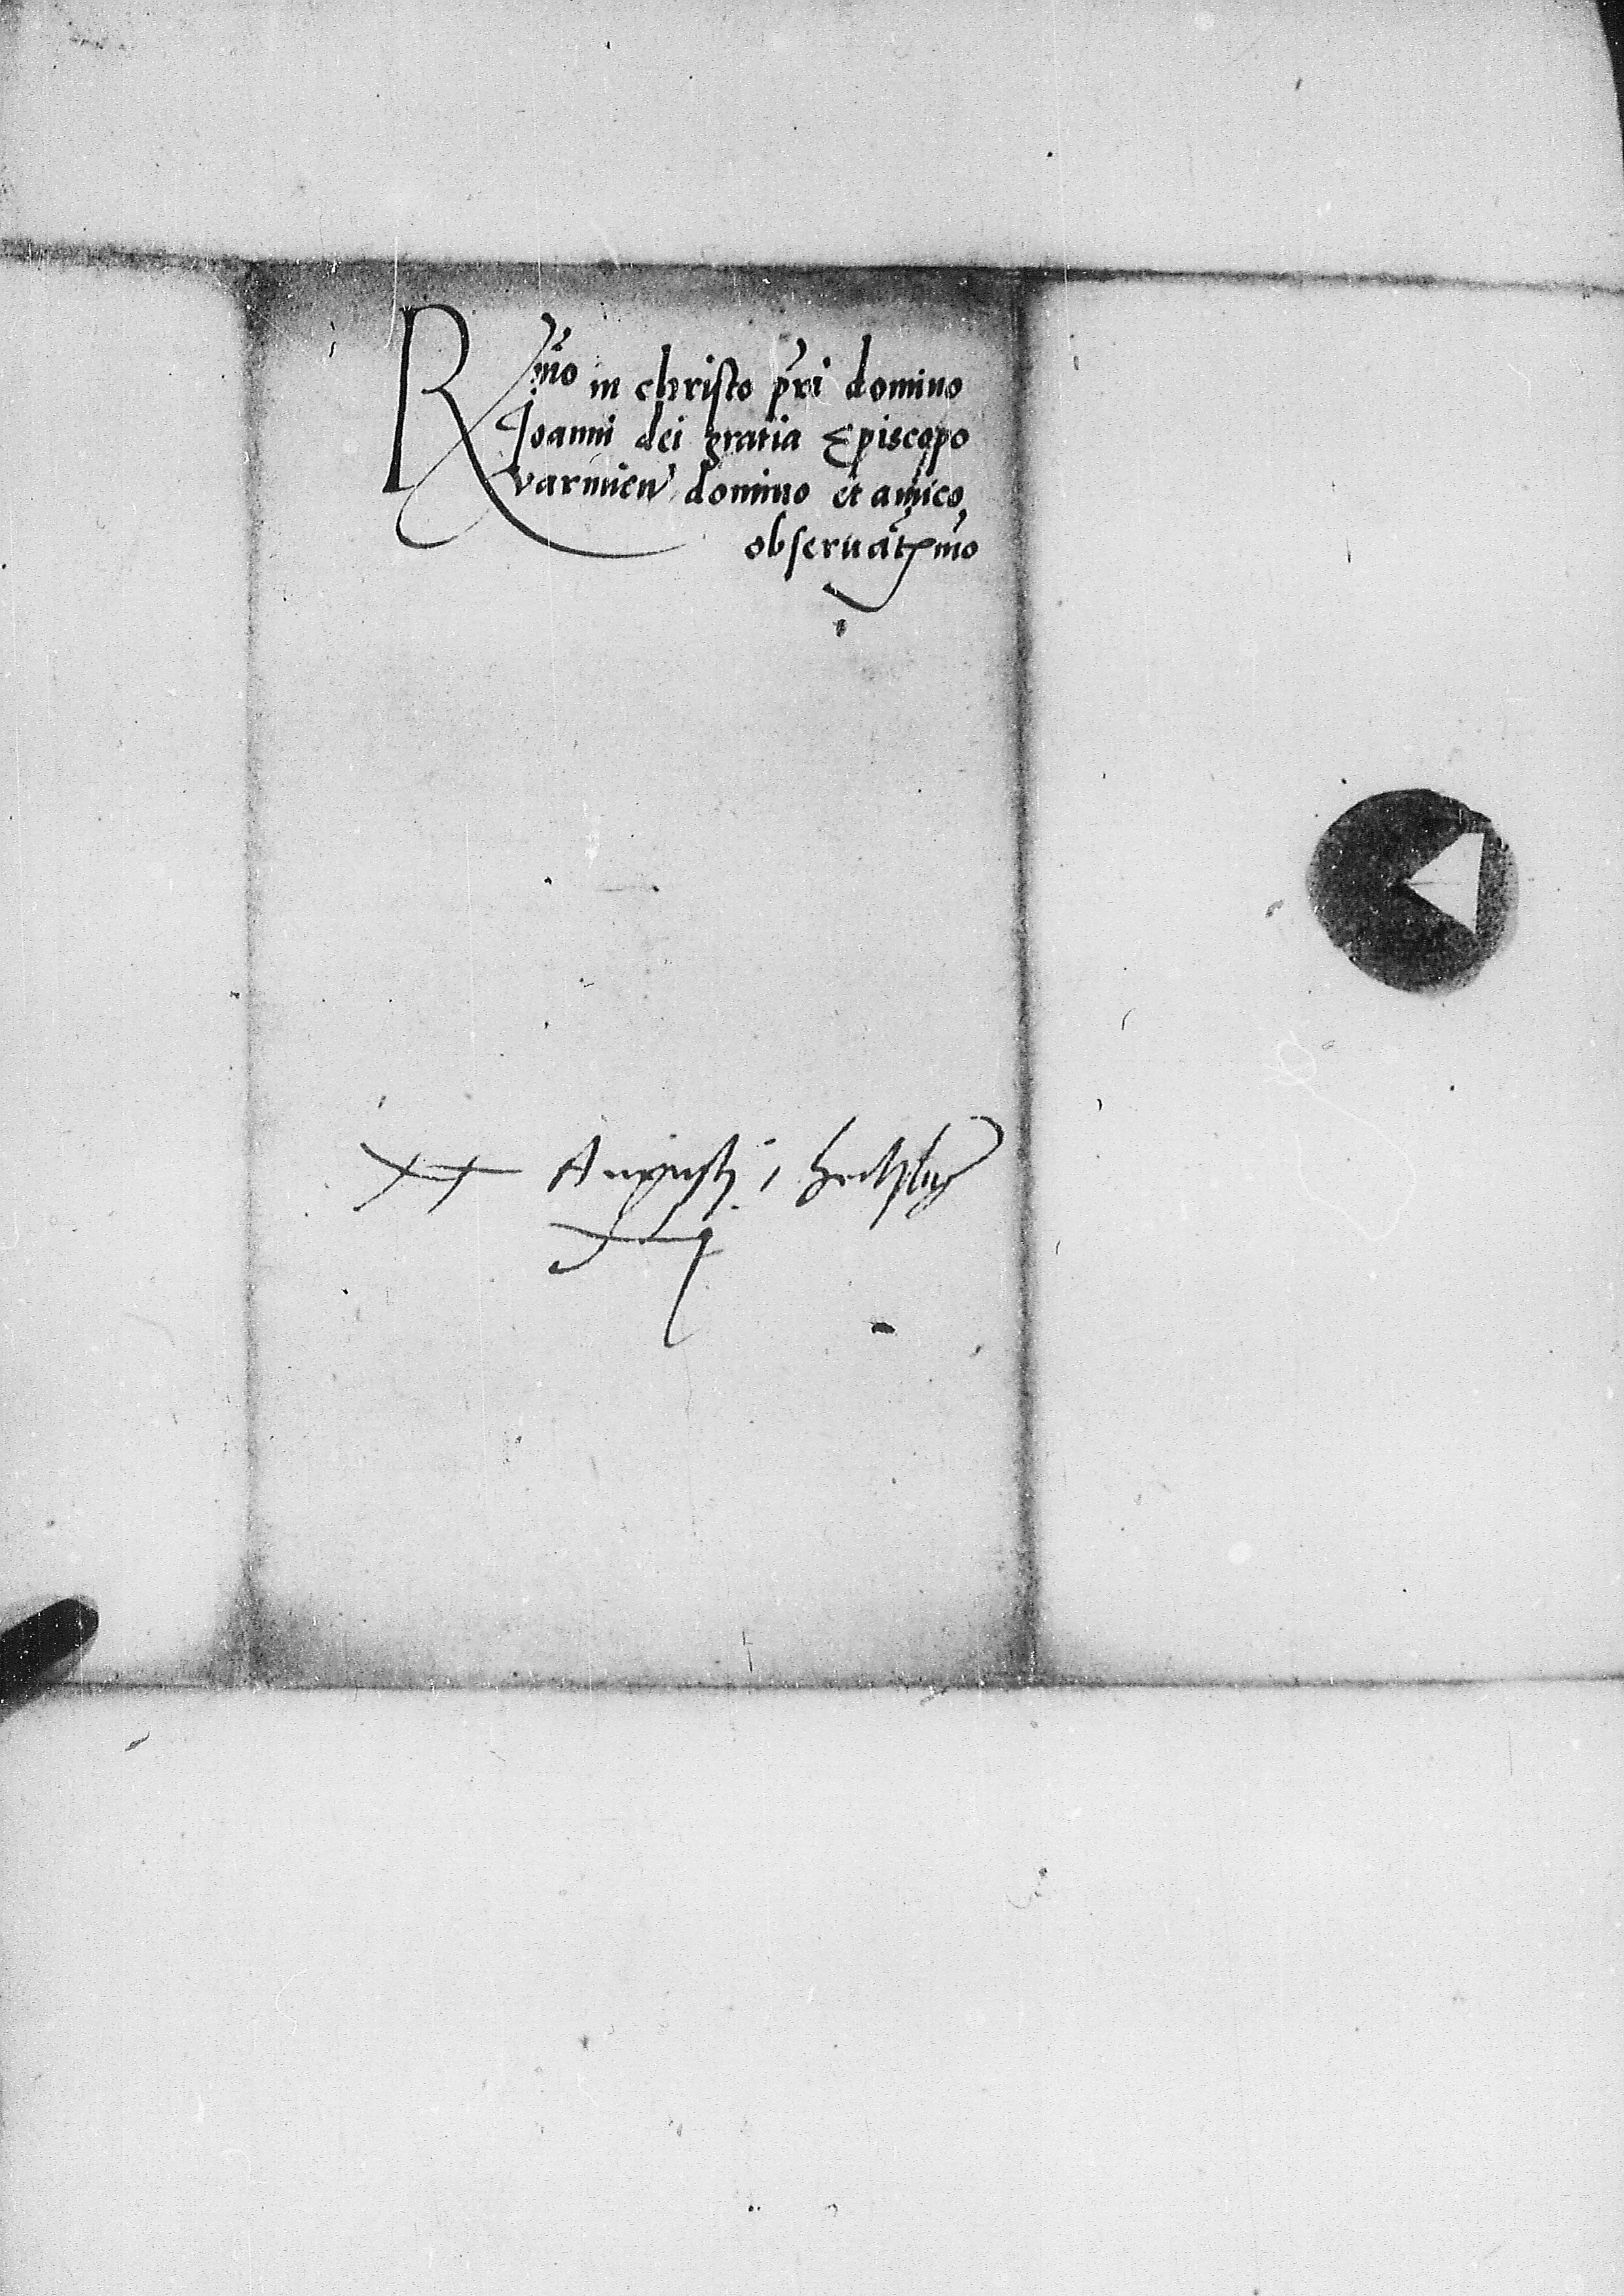 R̃mo in christo p̃ri domino
Joanni dei gratia Episcopo
varmieñ domino et amico
obseruat̃mo
XX Augusti